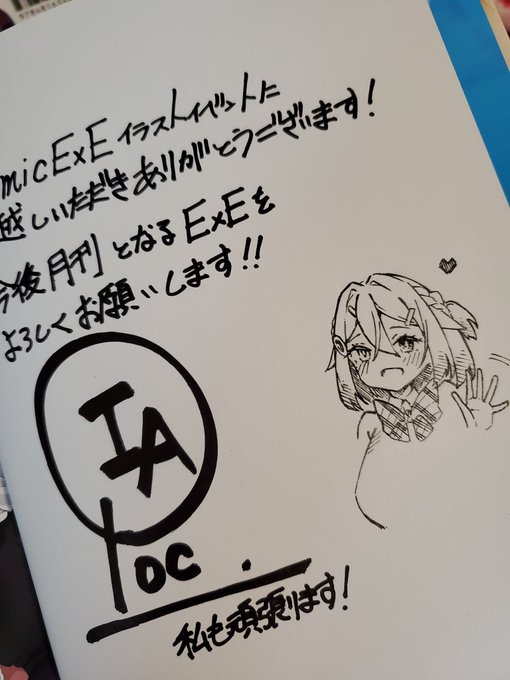 micExE イラストイベントに
越しいただきありがとうございます!
今後月刊となるExEを
よろしくお願いします!!
IA
Yoc.
私も頑張ります!